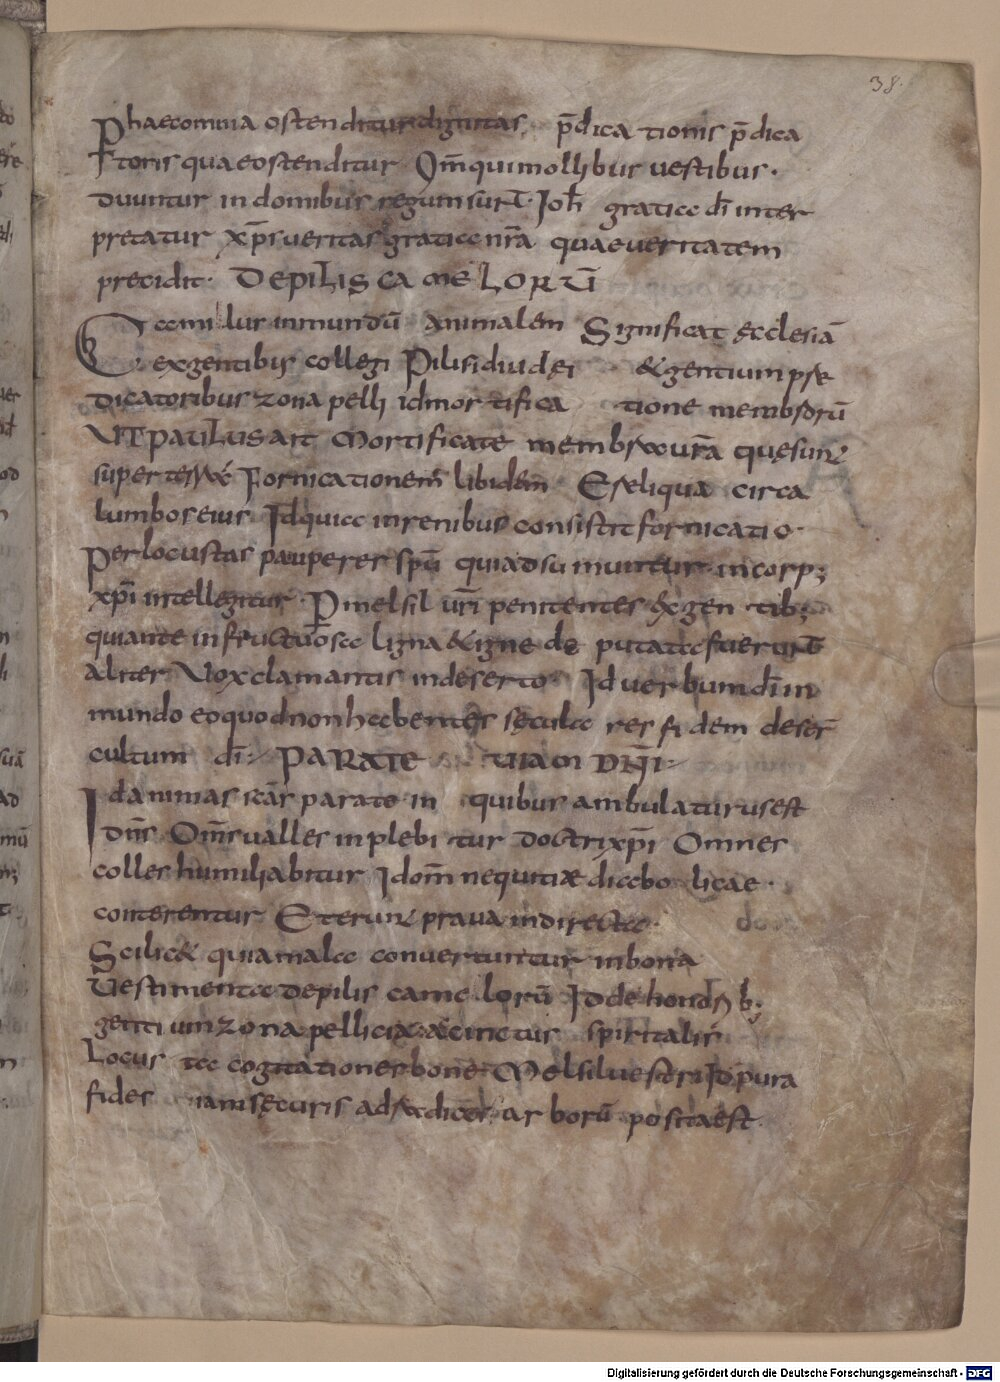 38.
Phaecomnia ostenditur dignitas p̄dicationis p̄dica
toris quae ostenditur Qm̄ qui mollibus vestibus.
duuntur in domibus regum sunt. Joh̄ gratia dī inter
pretatur xp̄s veritas gratia nr̄a quae veritatem
precidit. DEPILIS CAMELORŪ
Camilus inmundū animalem Significat ęcclesiā
ex gentibus collegi Pilis diuidęi & gentium prę
dicatoribus zona pelli id mortificatione membrorū
UT PAULUS AIT Mortificate membra ur̄a quę sunt
super terrā Fornicationem̄ libidem̄ E reliqua circa
lumbos eius Id quia in renibus consistit fornicatio.
Per locustas pauperes sp̄u qui adsumuntur in corp;
xp̄i intelleguntur. P mel sil ur̄i penitentes ex gentib;
qui ante infructuosa ligna & igne de putata fuerunt
aliter Vox clamantis in deserto Id verbum dī in
mundo eo quod non habentes secula res fidem deser̄
cultum dī. PARATE UIAM DN̄I
Id animas sc̄as parate in quibus ambulaturus est
dn̄s Om̄s ualles inplebitur doctri xp̄i Omnes
colles humiliabitur Id om̄ nequitiæ diabolicae.
conterentur Et erunt prava in directa.
Scilic& quia mala convertuntur in bona
Vestimenta de pilis camelorū Id de honorib;
gentium zona pellicia accinctus spiritalis
Locustae cogitationes bone Mel silvestri Id pura
fides iam securis ad radices arborū posita est
Digitalisierung gefördert durch die Deutsche Forschungsgemeinschaft - DFG